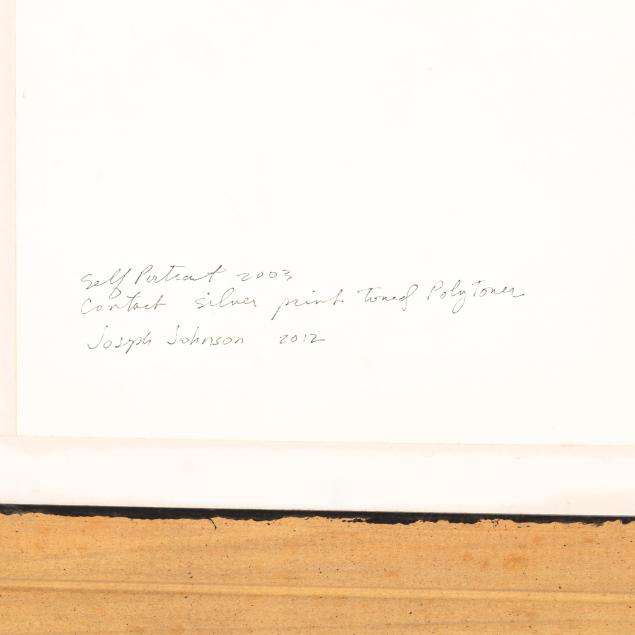 Self Portrait 2003
Contact silver print toned Poly Toner
Joseph Johnson 2012